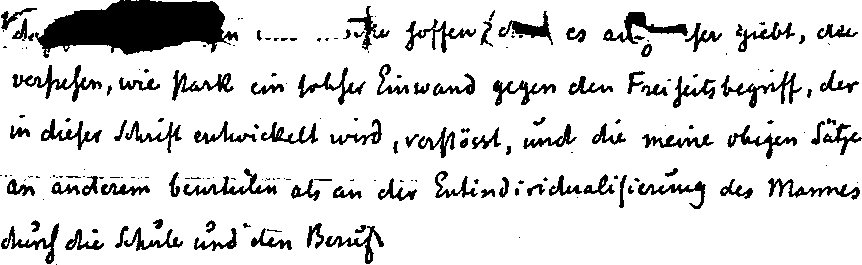 hoffen, es giebt, die
verstehen, wie stark ein solcher Einwand gegen den Freiheitsbegriff, der
in dieser Schrift entwickelt wird, verstösst, und die meine obigen Sätze
an anderem beurteilen als an der Entindividualisierung des Mannes
durch die Schule und den Beruf.